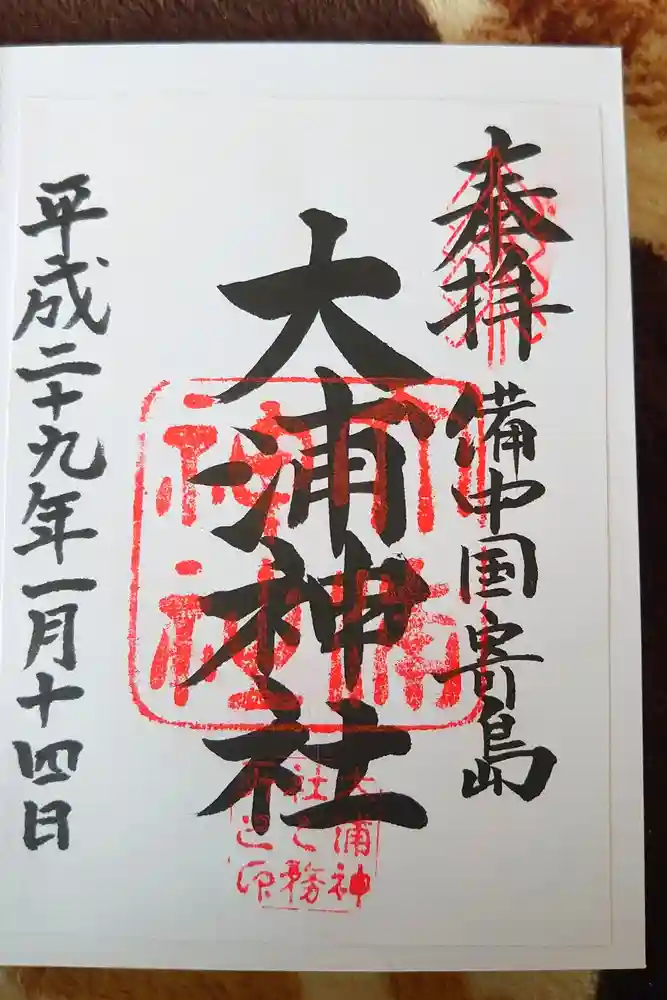 奉拝
備中国寄島
大浦神社
平成二十九年一月十四日
大浦神
社之務